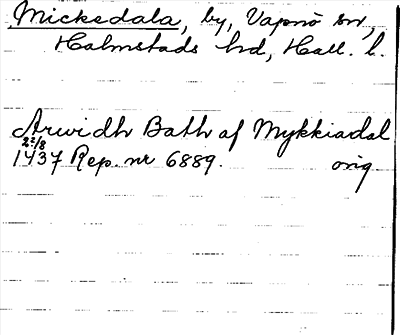 Mickedala, by, Vapnö sn,
Halmstads hd, Hall. l.
Arwidh Bath af Mykkiadal
22/8
1437 Rep. nr 6889. orig